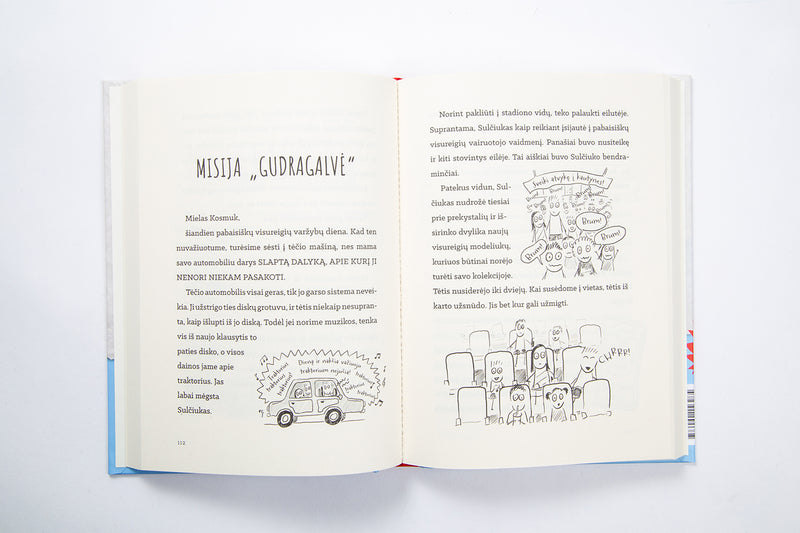 MISIJA „GUDRAGALVĖ“
Mielas Kosmuk,
šiandien pabaisiškų visureigių varžybų diena. Kad ten
nuvažiuotume, turėsime sėsti į tėčio mašiną, nes mama
savo automobiliu darys SLAPTĄ DALYKĄ, APIE KURĮ JI
NENORI NIEKAM PASAKOTI.
Tėčio automobilis visai geras, tik jo garso sistema nevei-
kia. Ji užstrigo ties diskų grotuvu, ir tėtis niekaip nesupran-
ta, kaip išlupti iš jo diską. Todėl jei norime muzikos, tenka
vis iš naujo klausytis to
paties disko, o visos
dainos jame apie
traktorius. Jas
labai mėgsta
Sulčiukas.
Traktorius
traktorius
traktorius!
Dieną ir naktį važiuoja
traktorium
112
Norint pakliūti į stadiono vidų, teko palaukti eilutėje.
Suprantama, Sulčiukas kaip reikiant įsijautė į pabaisiškų
visureigių vairuotojo vaidmenį. Panašiai buvo nusiteikę
ir kiti stovintys eilėje. Tai aiškiai buvo Sulčiuko bendra-
minčiai.
Patekus vidun, Sul-
čiukas nudrožė tiesiai
prie prekystalių ir iš-
sirinko dvylika naujų
visureigių modeliukų,
kuriuos būtinai norėjo
turėti savo kolekcijoje.
Sveiki atvykę į kautynes!
Brum!
Brum!
Brum!
Tėtis nusiderėjo iki dviejų. Kai susėdome į vietas, tėtis iš
karto užsnūdo. Jis bet kur gali užmigti.
CHRRR!